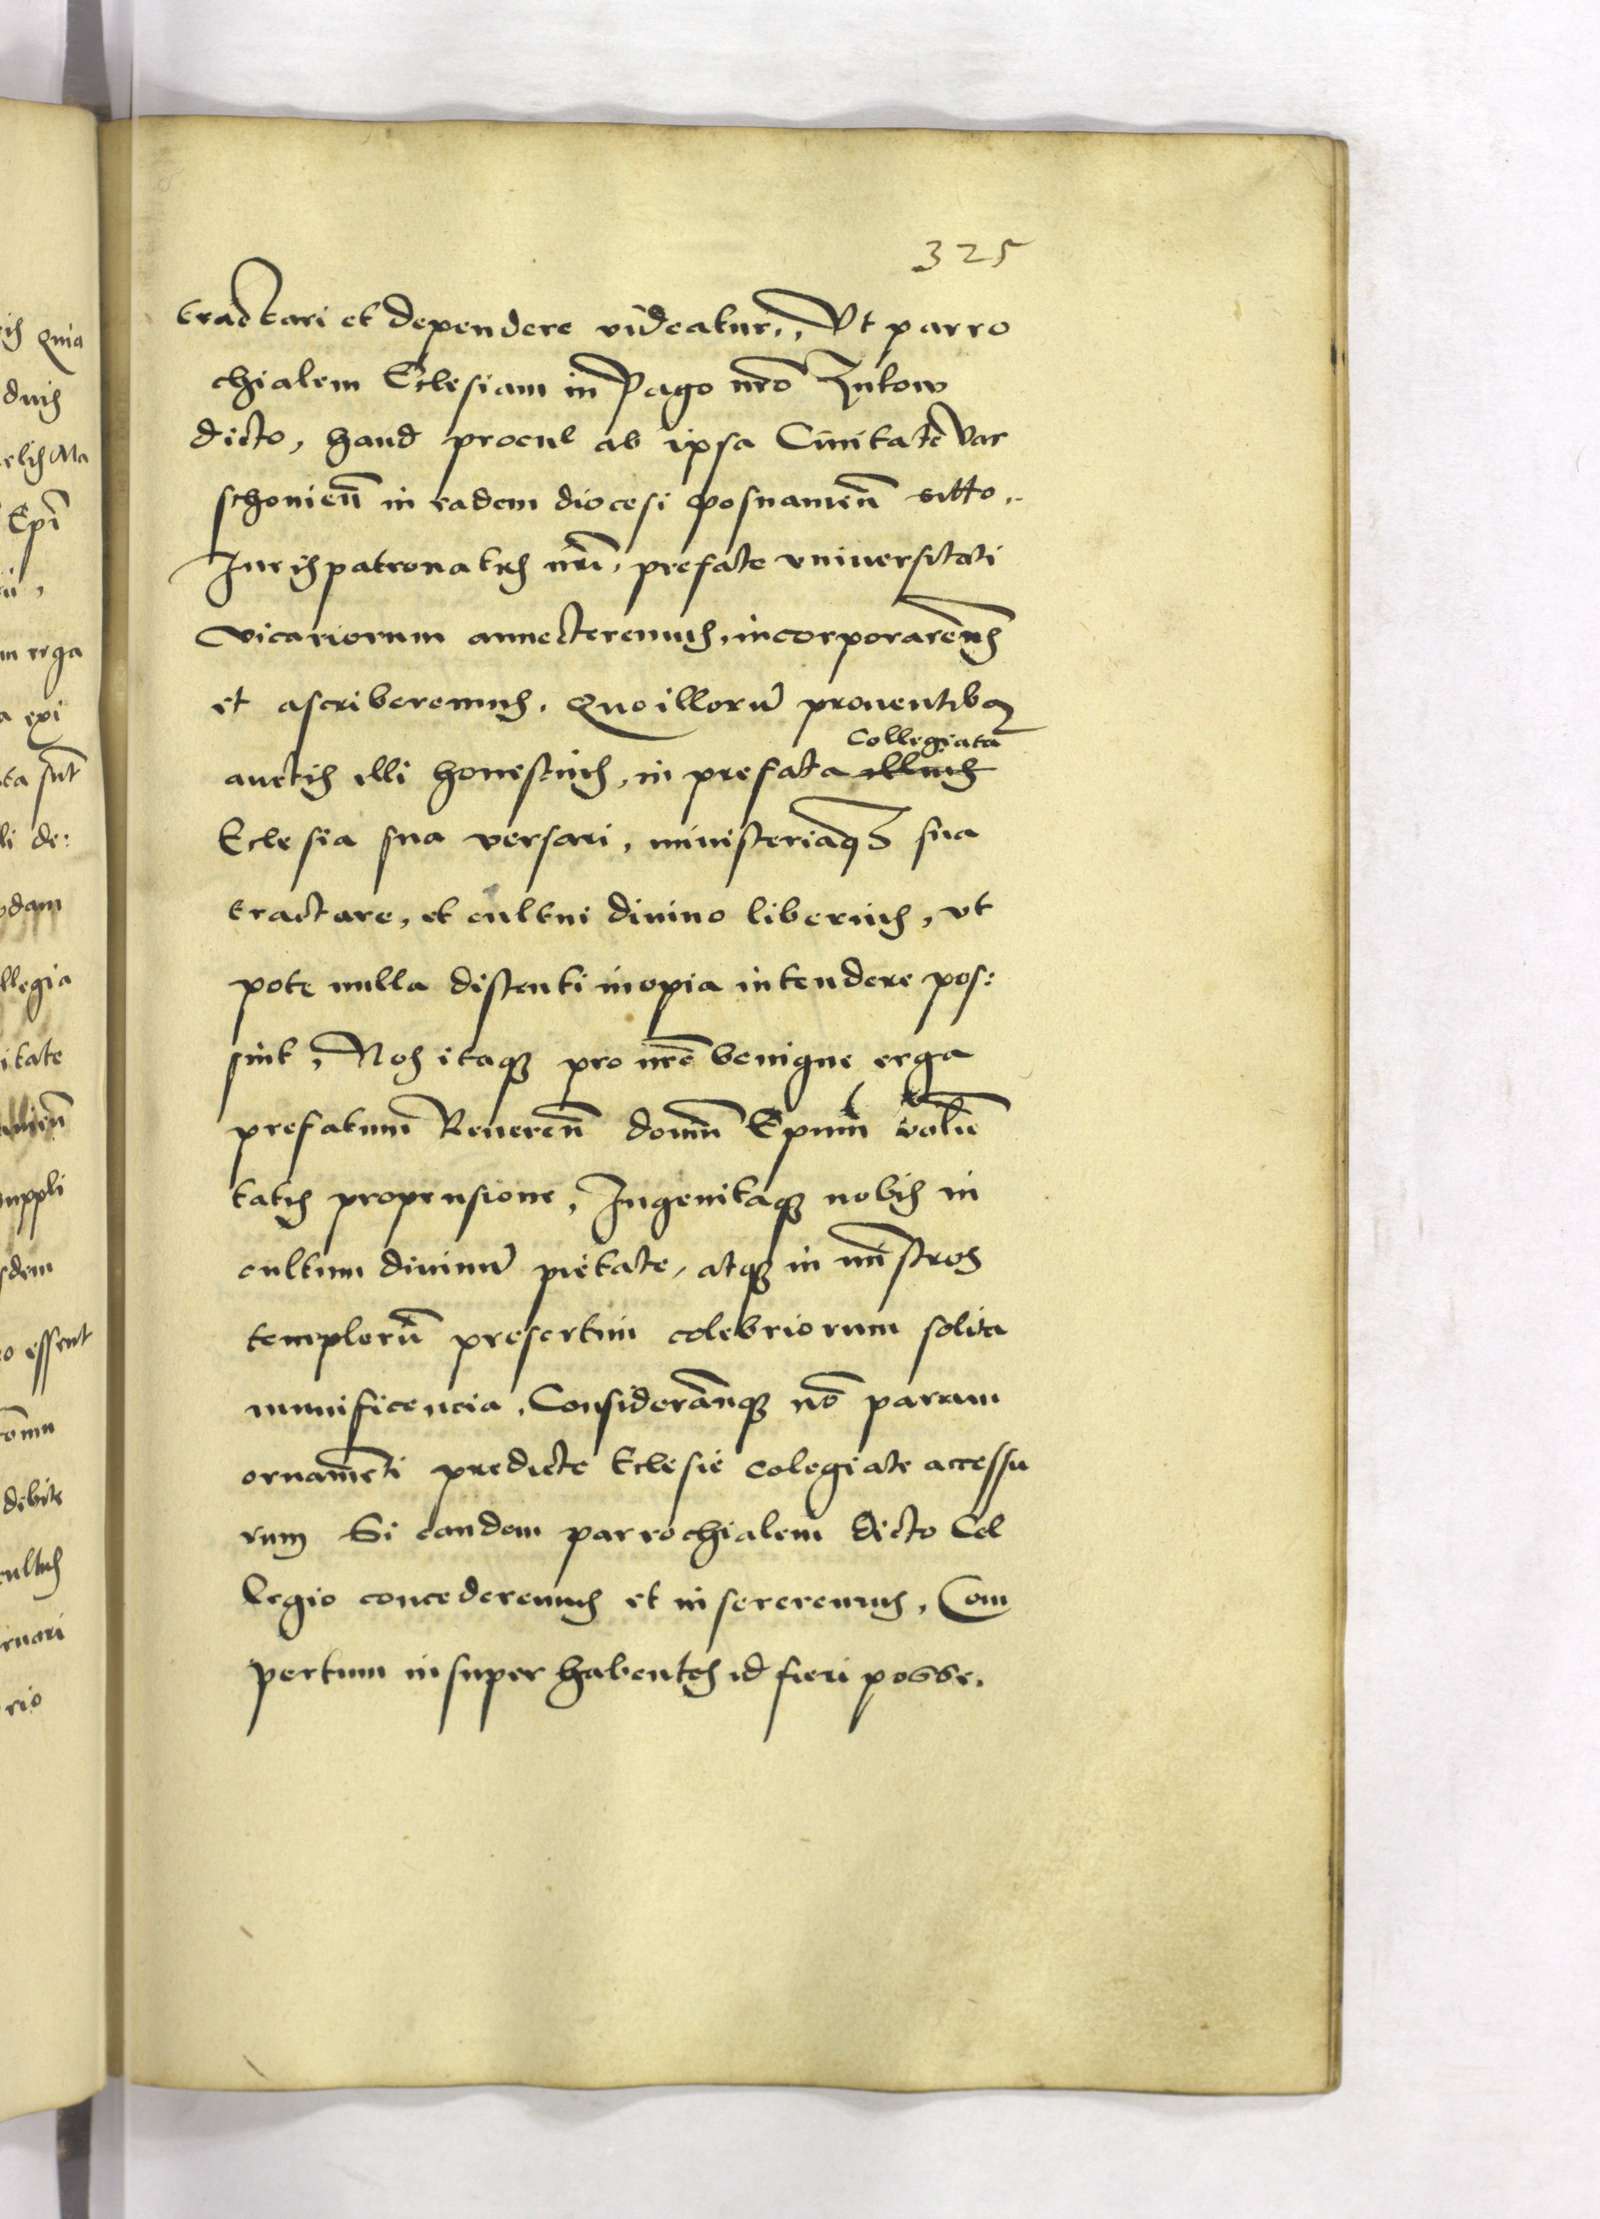 325
tractari et dependere videatur,, Vt parro
chialem Eclesiam in Pago nrō Zukow
dicto, haud procul ab ipsa Ciuitate Var
schouień in eadem diocesi posnanień sitto..
Jurispatronatus nrī, prefate vniuersitati
vicariorum annecteremus, incorporarem̄us
et ascriberemus. Quo illorū prouentibq
auctis illi honestius, in prefata Collegiata
Eclesia sua versari, ministeriaq3 sua
tractare, et cultui diuino liberius, vt
pote nulla distenti inopia intendere pos:
sint, Nos itaq3 pro nrē benigne erga
prefatum Reuereñ domm̄ Epum̄
tatis propensione, Ingenitaq3 nobis in
cultum diuinū pietate, atq3 in mīstros
templorū presertim celebriorum solita
munificencia, Considerāntq3 nō parum
ornam̄eti predicte Eclesie colegiate accessu
rum Si eandem parrochialem dicto Col
legio concederemus et in sereremus, Com
pertum in super habentes id fieri posse.
ris Quia
duis
elis Ma
Epī
m erga
a epi
ta sūt
li de:
odam
llegia
itate
uppli
sdem
o essent
debite
cultus
ruari
rio